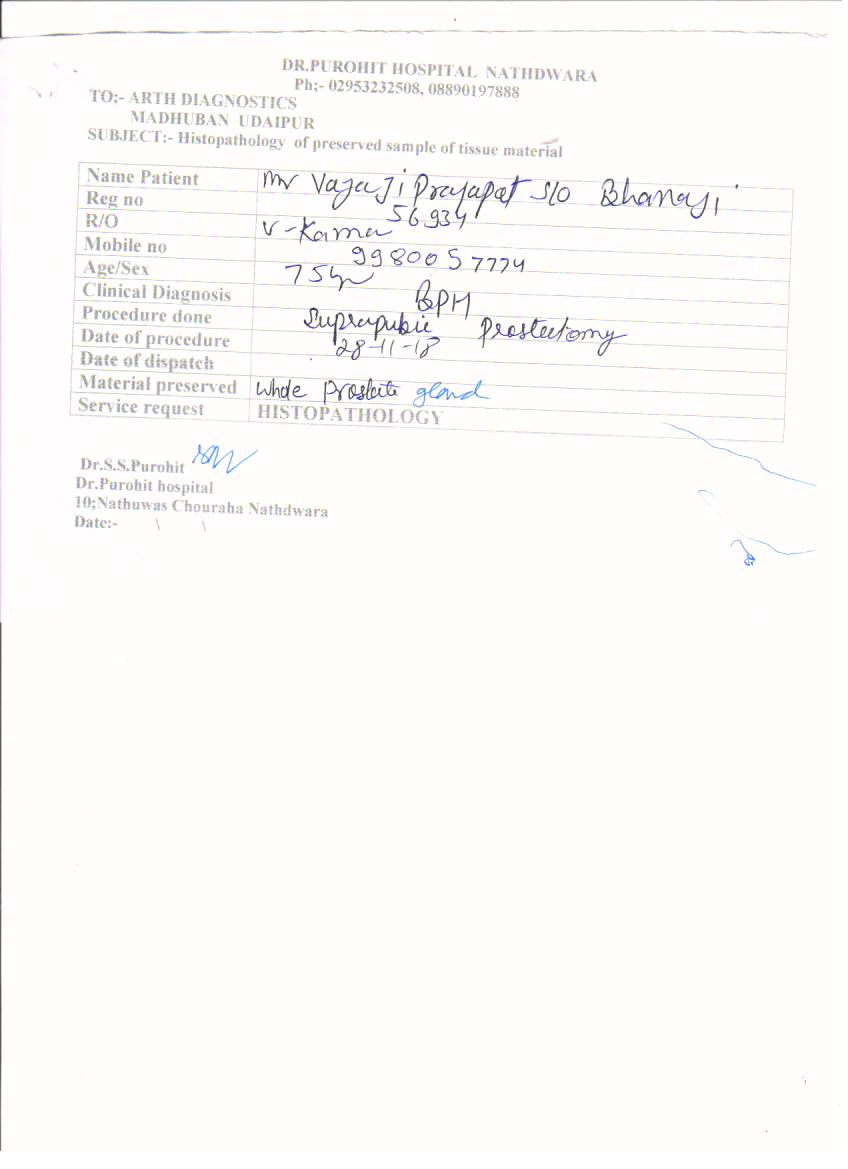 DR.PUROHIT HOSPITAL NATHDWARA
Ph;- 02953232508, 08890197888
TO;- ARTH DIAGNOSTICS
MADHUBAN UDAIPUR
SUBJECT:- Histopathology of preserved sample of tissue material
Name Patient Mr Vajaji Prajapat S/O Bhanaji
Reg no 56934
R/O V-Kama
Mobile no 9980057774
Age/Sex 75yr
Clinical Diagnosis BPH
Procedure done Suprapubic Prostectomy
Date of procedure 28-11-18
Date of dispatch
Material preserved Whole Prostate gland
Service request HISTOPATHOLOGY
Dr.S.S.Purohit
Dr.Purohit hospital
10;Nathuwas Chouraha Nathdwara
Date:- \ \